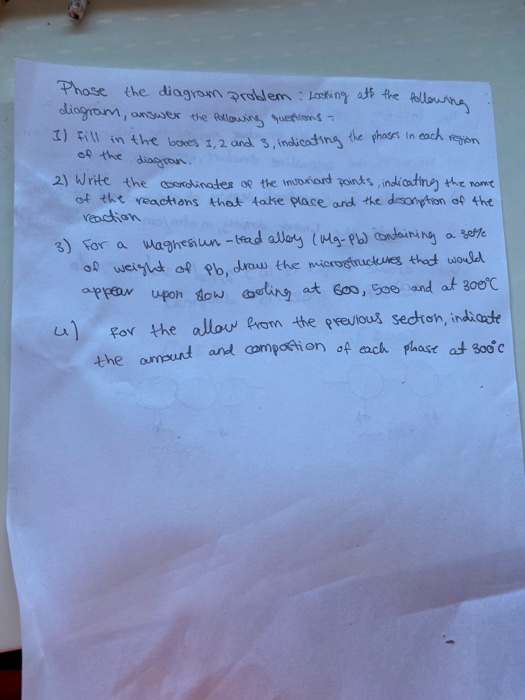 Phase the diagram problem: Looking att the following
diagram, answer the following questions:
1) Fill in the boxes 1, 2 and 3, indicating the phases in each region
of the diagram.
2) Write the coordinates of the invariant points, indicating the name
of the reactions that take place and the description of the
reaction
3) For a Magnesium-lead alloy (Mg-Pb) containing a 30%
of weight of Pb, draw the microstructures that would
appear upon slow cooling at 600, 500 and at 300°C
4) For the allow from the previous section, indicate
the amount and compostion of each phase at 300°C